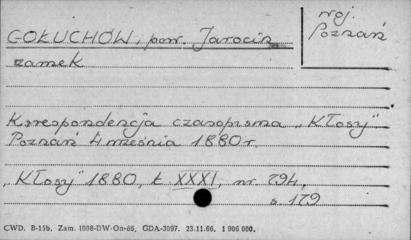 GOŁUCHÓW, pow. Jarocin
woj. Poznań
zamek
Korespondencja czasopisma „Kłosy"
Poznań 4 września 1880 r.
„Kłosy" 1880, t. XXXI, nr. 794,
s. 179
CWD. B-15b. Zam. 1008-DW-On-66, GDA-3097. 23.11.66. 1 906 000.